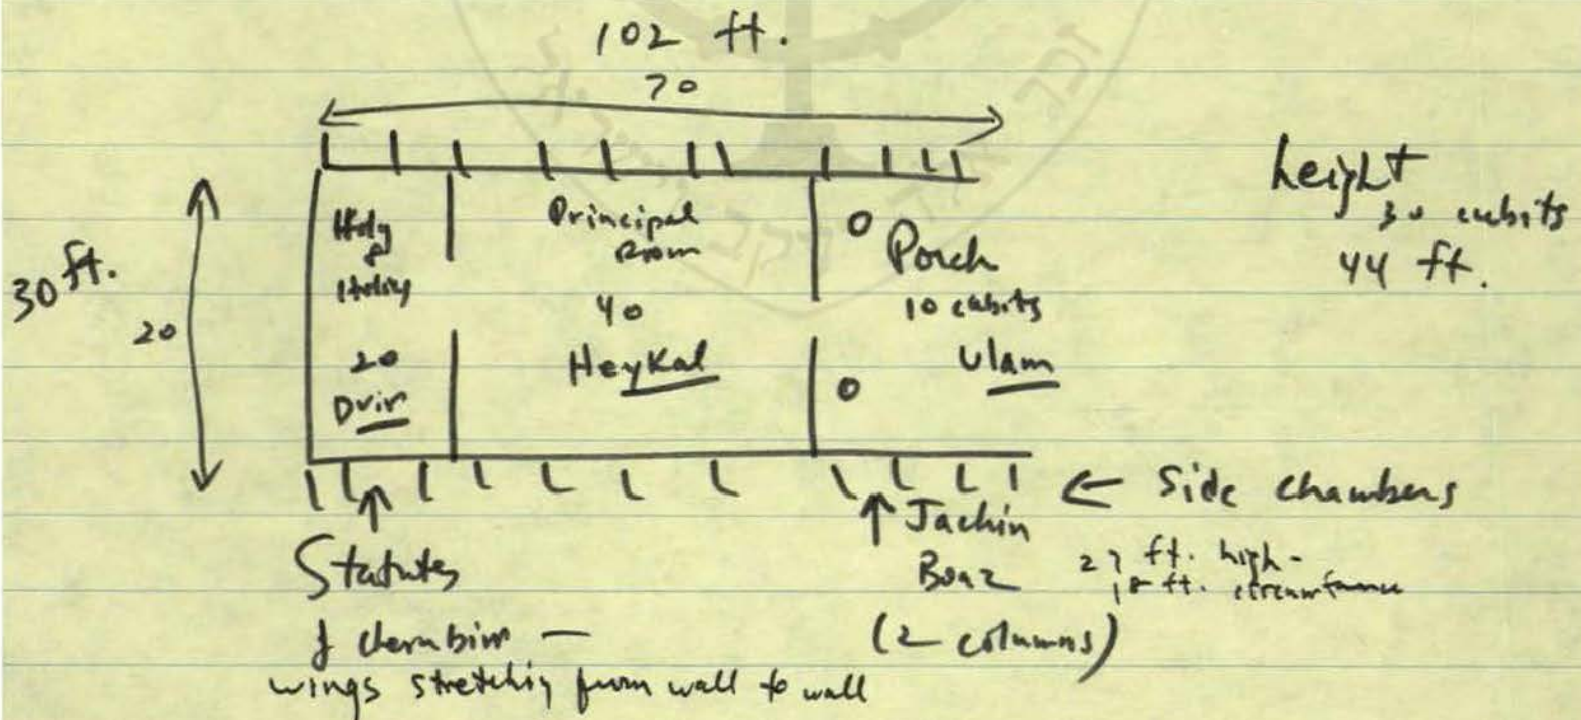 102 ft.
70
height
30 cubits
44 ft.
30 ft.
20
Holy
of
Holies
20
Dvir
Principal
Room
40
Heykal
Porch
10 cubits
Ulam
← Side chambers
Statutes
of cherubim —
wings stretching from wall to wall
Jachin
Boaz
(2 columns)
27 ft. high -
18 ft. circumference